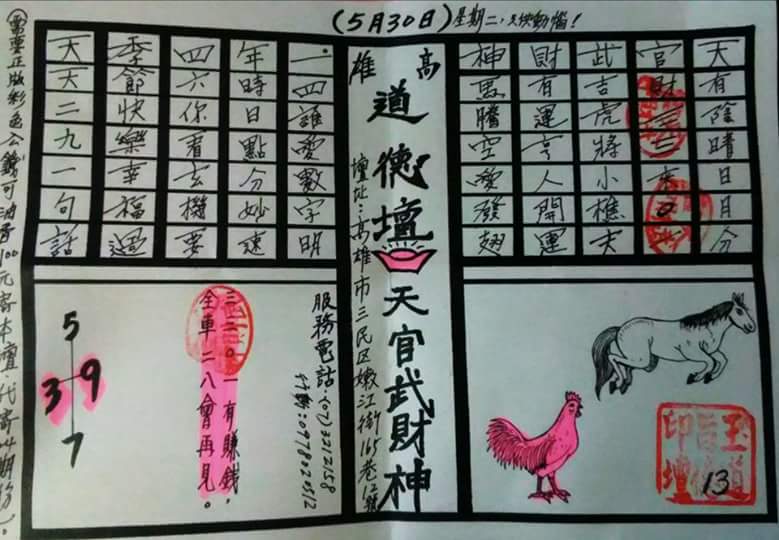 (5月30日)星期二,又快動惱!
高雄
道德壇 天官武財神
壇址:高雄市三民区嫩江街165巷12號
天有陰晴日月分
官財三三來0
武吉虎將小樵夫
財有運亨人開運
神馬騰空愛發翅
一四誰愛數字明
年時日點分妙速
四六你看玄機要
季節快樂幸福過
天天二九一句話
服務電話:(07)3212158
行動:0978020512
三二0一有賺錢,
全車二八會再見。
5
3 9
7
玉旨道德壇印
13
需要正版彩色公錢可油香100元寄本壇.代寄4期份。